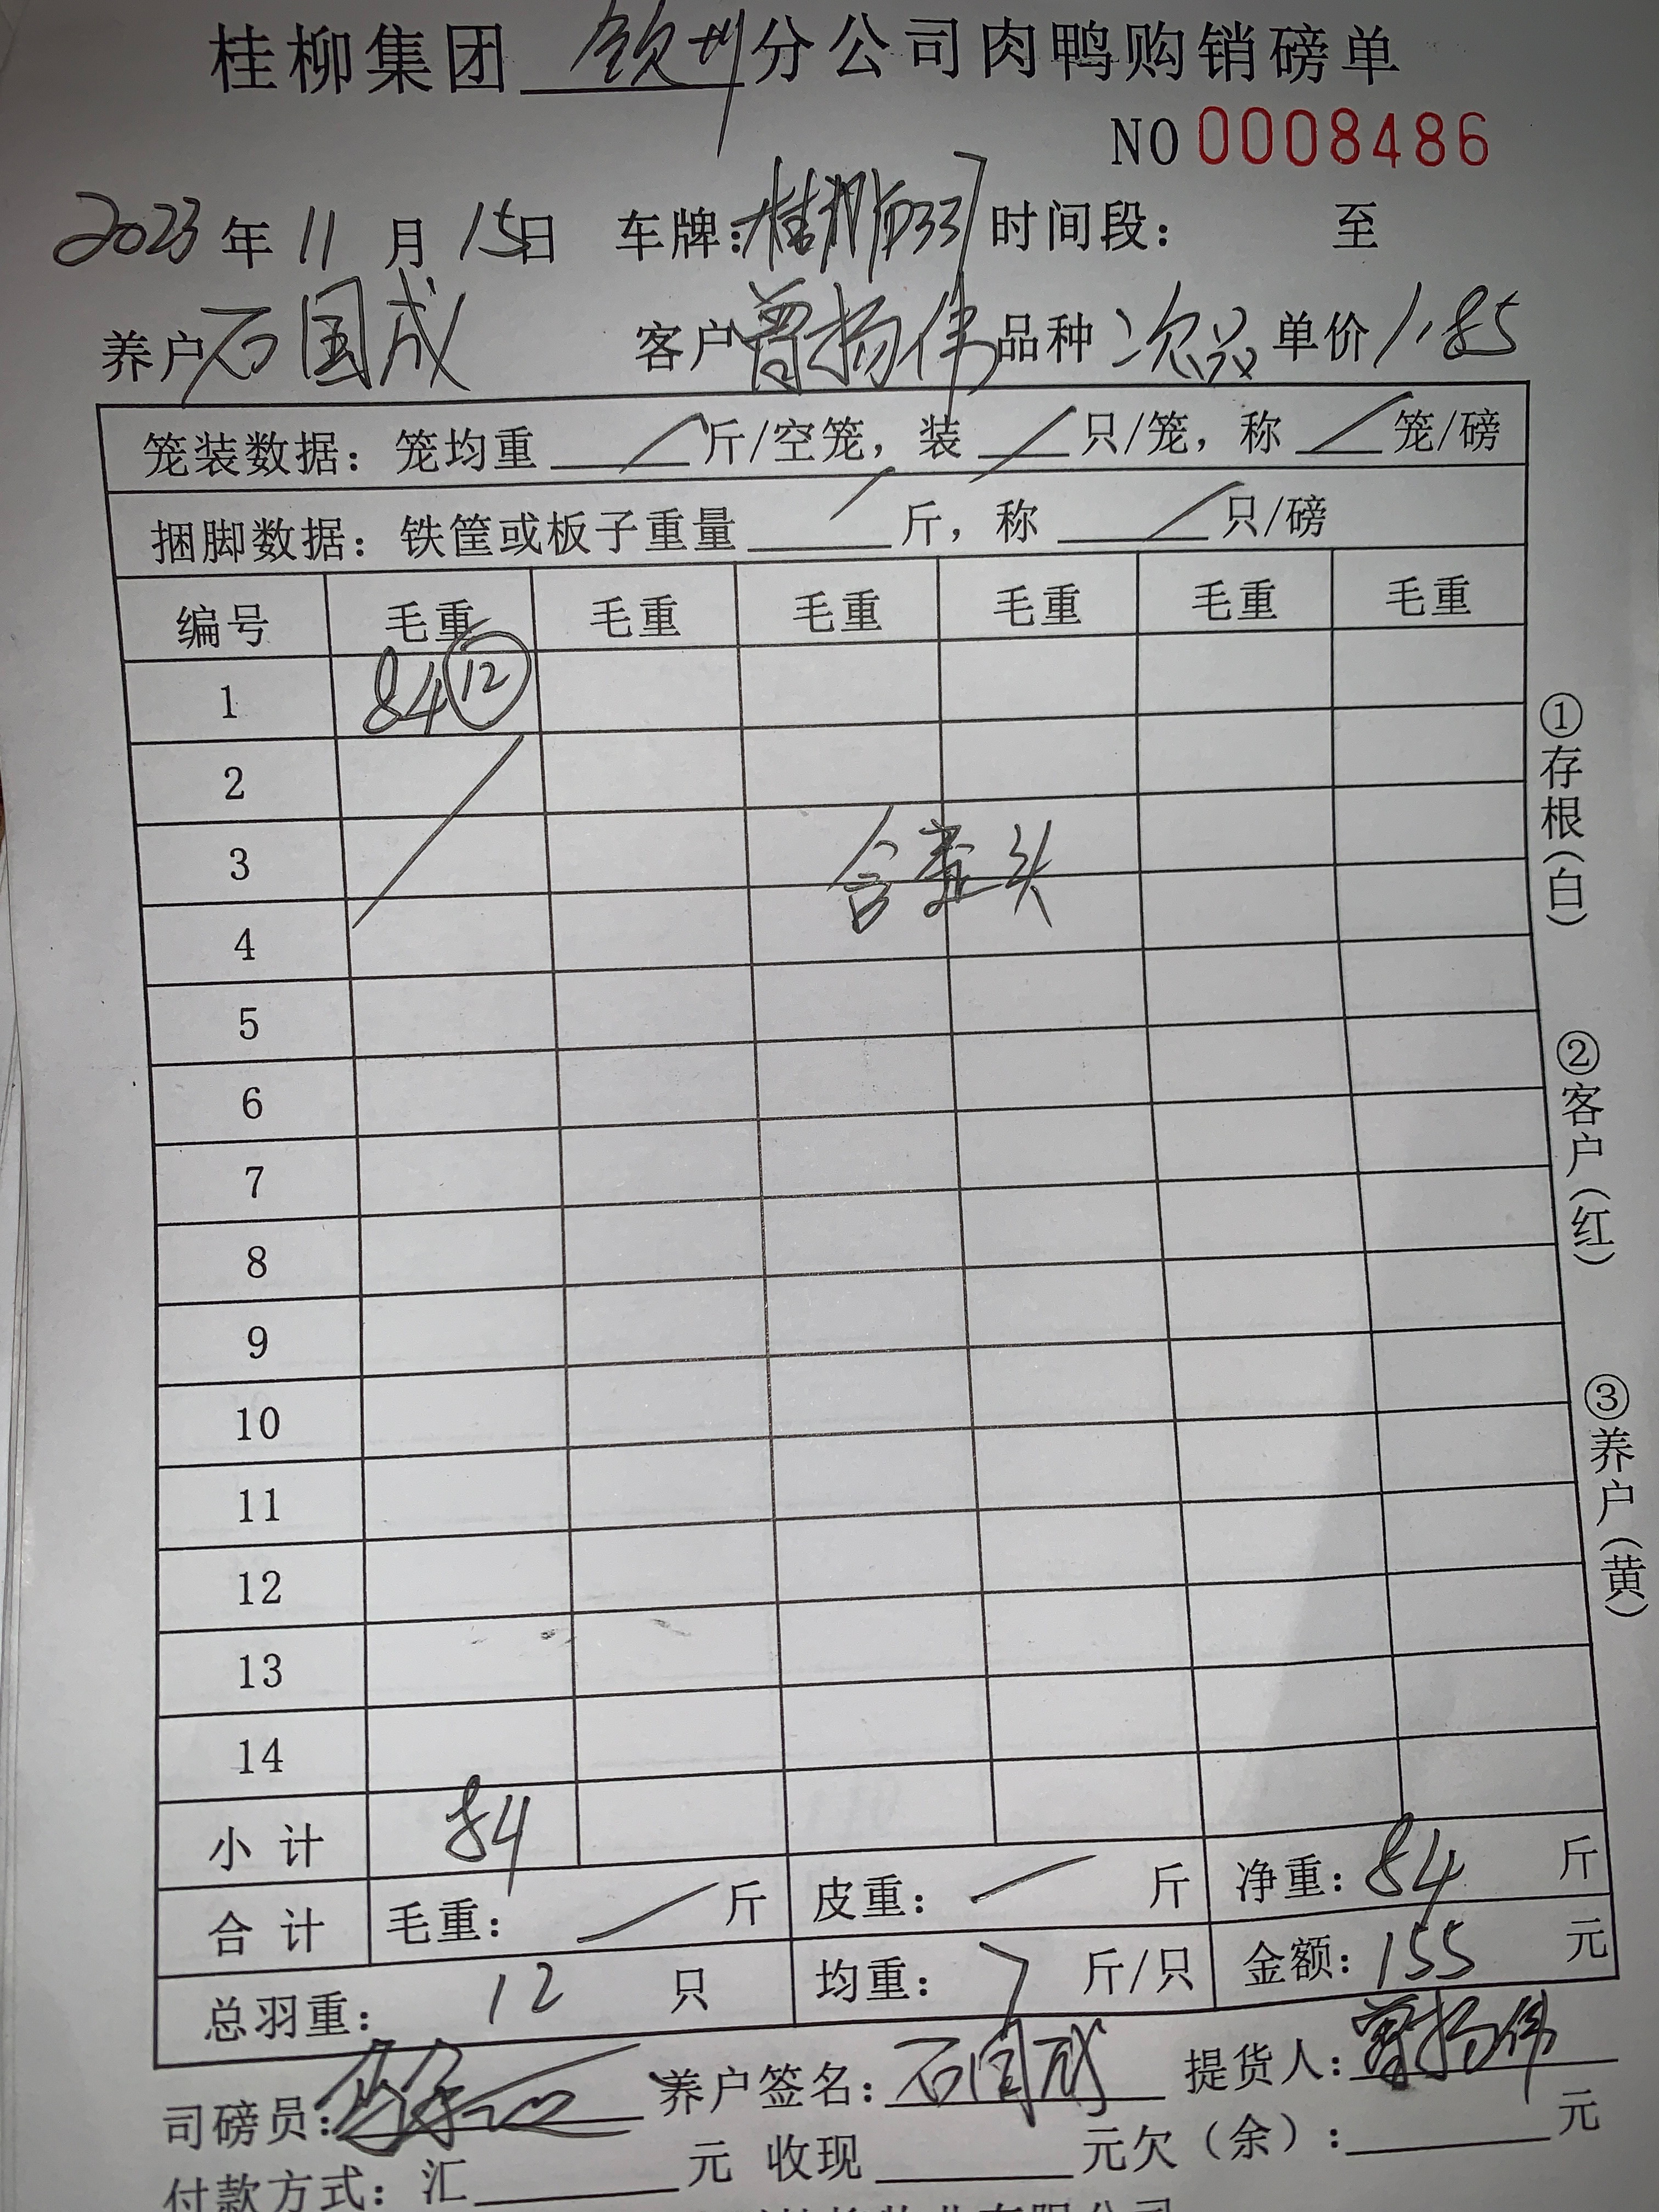 桂柳集团 钦州 分公司肉鸭购销磅单
NO 0008486
2023 年 11 月 15 日 车牌: 时间段: 至
养户 石国成 客户 曾扬伟 品种 次品 单价 1.85
笼装数据: 笼均重 / 斤/空笼, 装 / 只/笼, 称 / 笼/磅
捆脚数据: 铁筐或板子重量 / 斤, 称 / 只/磅
编号 毛重 毛重 毛重 毛重 毛重 毛重
1 84 ⑫
2
3 含 头
4
5
6
7
8
9
10
11
12
13
14
小计 84
合计 毛重: / 斤 皮重: / 斤 净重: 84 斤
总羽重: 12 只 均重: 7 斤/只 金额: 155 元
司磅员: 养户签名: 石国成 提货人: 曾扬伟
付款方式: 汇 元 收现 元 欠(余): 元
①存根(白)
②客户(红)
③养户(黄)